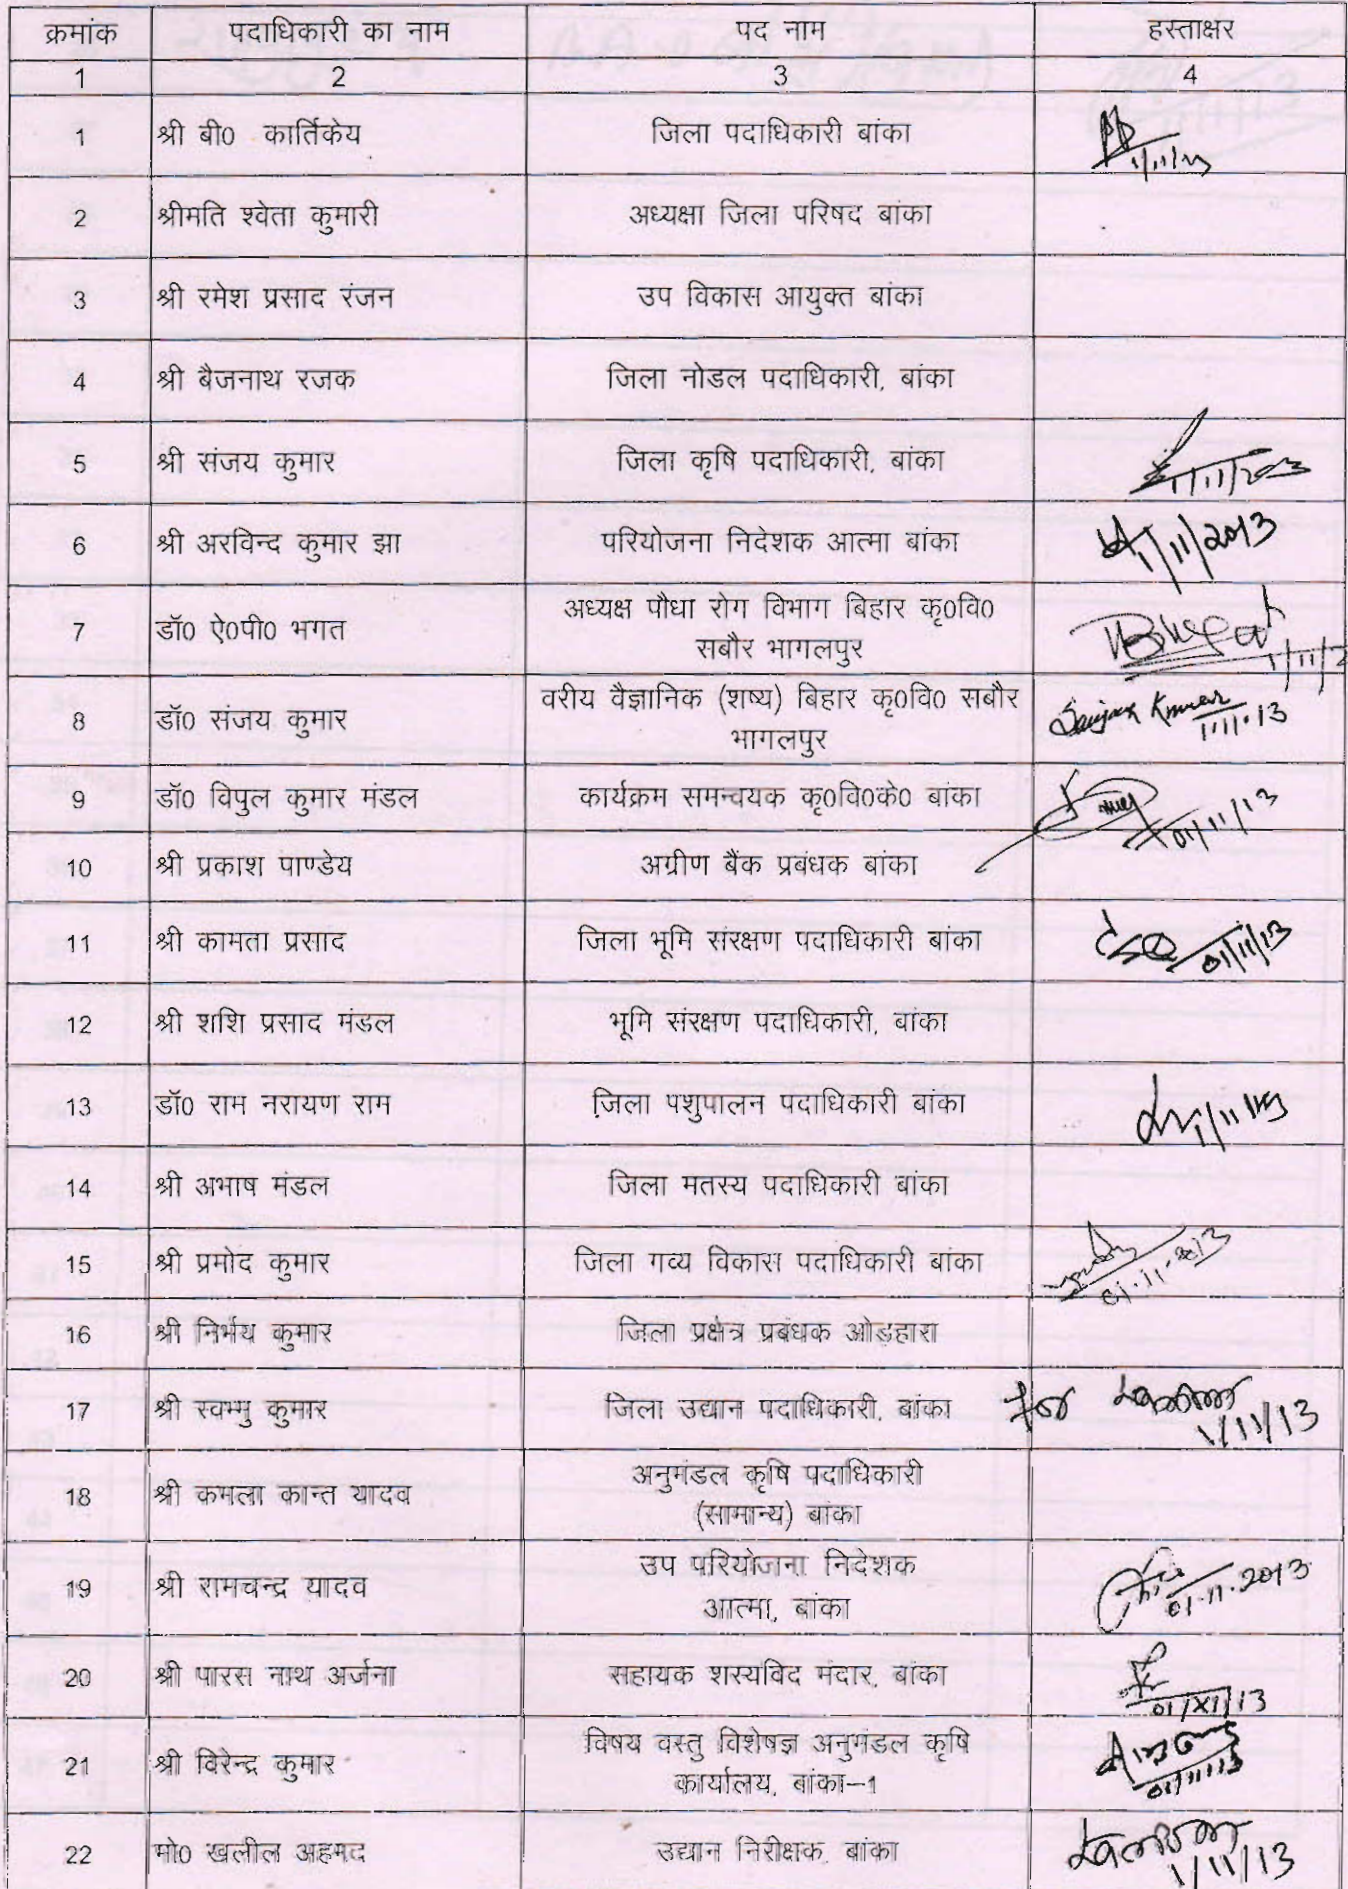 क्रमांक पदाधिकारी का नाम पद नाम हस्ताक्षर
1 2 3 4
1 श्री बी0 कार्तिकेय जिला पदाधिकारी बांका
2 श्रीमति श्वेता कुमारी अध्यक्षा जिला परिषद बांका
3 श्री रमेश प्रसाद रंजन उप विकास आयुक्त बांका
4 श्री बैजनाथ रजक जिला नोडल पदाधिकारी, बांका
5 श्री संजय कुमार जिला कृषि पदाधिकारी, बांका
6 श्री अरविन्द कुमार झा परियोजना निदेशक आत्मा बांका 1/11/2013
7 डॉ0 ऐ0पी0 भगत अध्यक्ष पौधा रोग विभाग बिहार कृ0वि0
सबौर भागलपुर
8 डॉ0 संजय कुमार वरीय वैज्ञानिक (शष्य) बिहार कृ0वि0 सबौर Sanjay Kumar
भागलपुर 1.11.13
9 डॉ0 विपुल कुमार मंडल कार्यक्रम समन्वयक कृ0वि0के0 बांका 01/11/13
10 श्री प्रकाश पाण्डेय अग्रीण बैंक प्रबंधक बांका
11 श्री कामता प्रसाद जिला भूमि संरक्षण पदाधिकारी बांका 01/11/13
12 श्री शशि प्रसाद मंडल भूमि संरक्षण पदाधिकारी, बांका
13 डॉ0 राम नरायण राम जिला पशुपालन पदाधिकारी बांका
14 श्री अभाष मंडल जिला मतस्य पदाधिकारी बांका
15 श्री प्रमोद कुमार जिला गव्य विकास पदाधिकारी बांका 01.11.2013
16 श्री निर्भय कुमार जिला प्रक्षेत्र प्रबंधक ओड़हारा
17 श्री स्वम्मु कुमार जिला उद्यान पदाधिकारी, बांका 1/11/13
18 श्री कमला कान्त यादव अनुमंडल कृषि पदाधिकारी
(सामान्य) बांका
19 श्री रामचन्द्र यादव उप परियोजना निदेशक
आत्मा, बांका 01.11.2013
20 श्री पारस नाथ अर्जना सहायक शस्यविद मंदार, बांका 01/XI/13
21 श्री विरेन्द्र कुमार विषय वस्तु विशेषज्ञ अनुमंडल कृषि
कार्यालय, बांका-1 01/11/13
22 मो0 खलील अहमद उद्यान निरीक्षक बांका 1/11/13